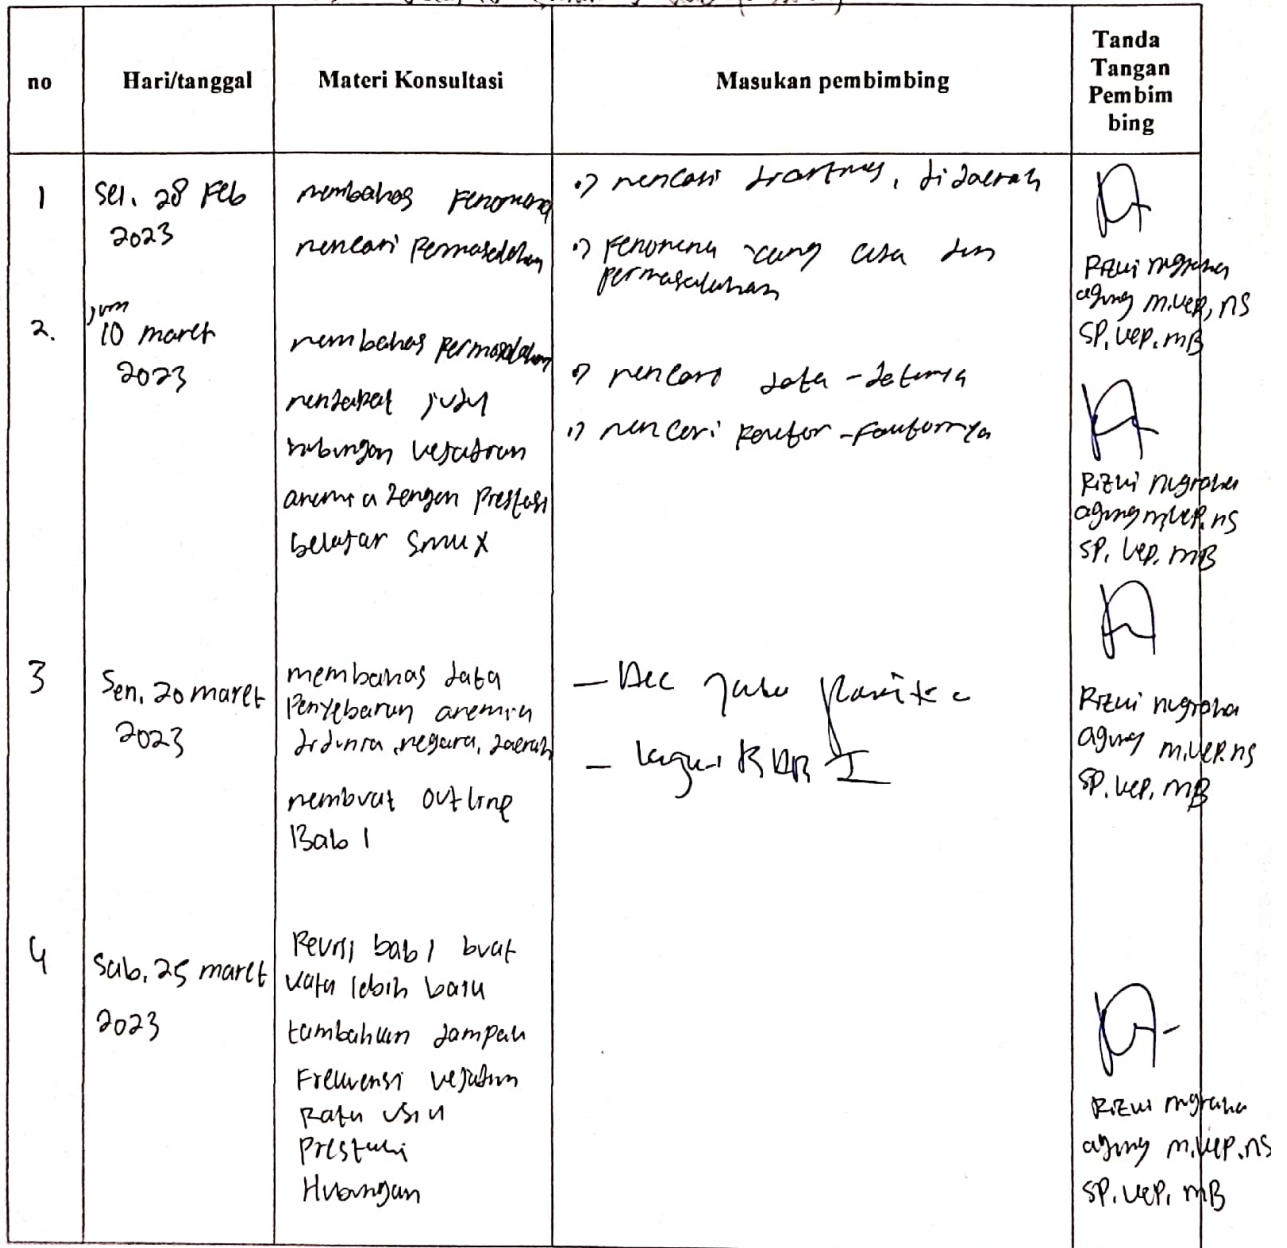 no
Hari/tanggal
Materi Konsultasi
Masukan pembimbing
Tanda
Tangan
Pembim
bing
1
Sel, 28 Feb
2023
membahas Fenomena
mencari Permasalahan
mencari di daerah
Fenomena yang ada dan
permasalahan
Rizki nugraha
agung m.kep, ns
SP. kep. MB
2.
jum
10 maret
2023
membahas permasalahan
mendapat judul
hubungan kejadian
anemia dengan prestasi
belajar
mencari data-datanya
mencari faktor-faktornya
Rizki nugraha
agung m.kep. ns
SP. kep. MB
3
Sen, 20 maret
2023
membahas data
Penyebaran anemia
didunia, negara, daerah
membuat outline
Bab 1
Rizki nugraha
agung m.kep. ns
SP. kep. MB
4
Sab, 25 maret
2023
Revisi bab 1 buat
kata lebih baru
tambahkan dampak
Frekuensi kejadian
Rata usia
Hubungan
Rizki nugraha
agung m.kep. ns
SP. kep. MB